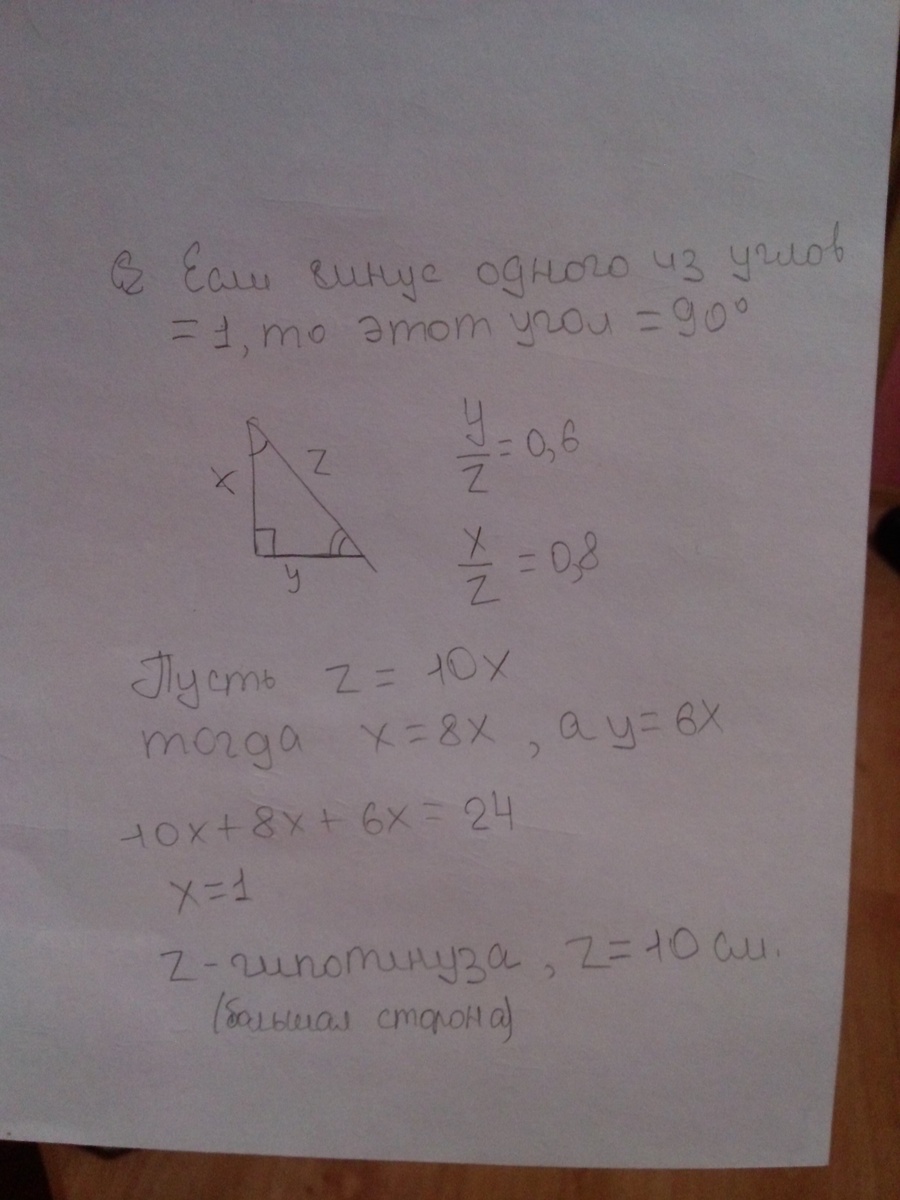 Если синус одного из углов
= 1, то этот угол = 90°
x
z
y
y/z = 0,6
x/z = 0,8
Пусть z = 10x
тогда x = 8x, а y = 6x
10x + 8x + 6x = 24
x = 1
z - гипотинуза, z = 10 см.
(большая сторона)